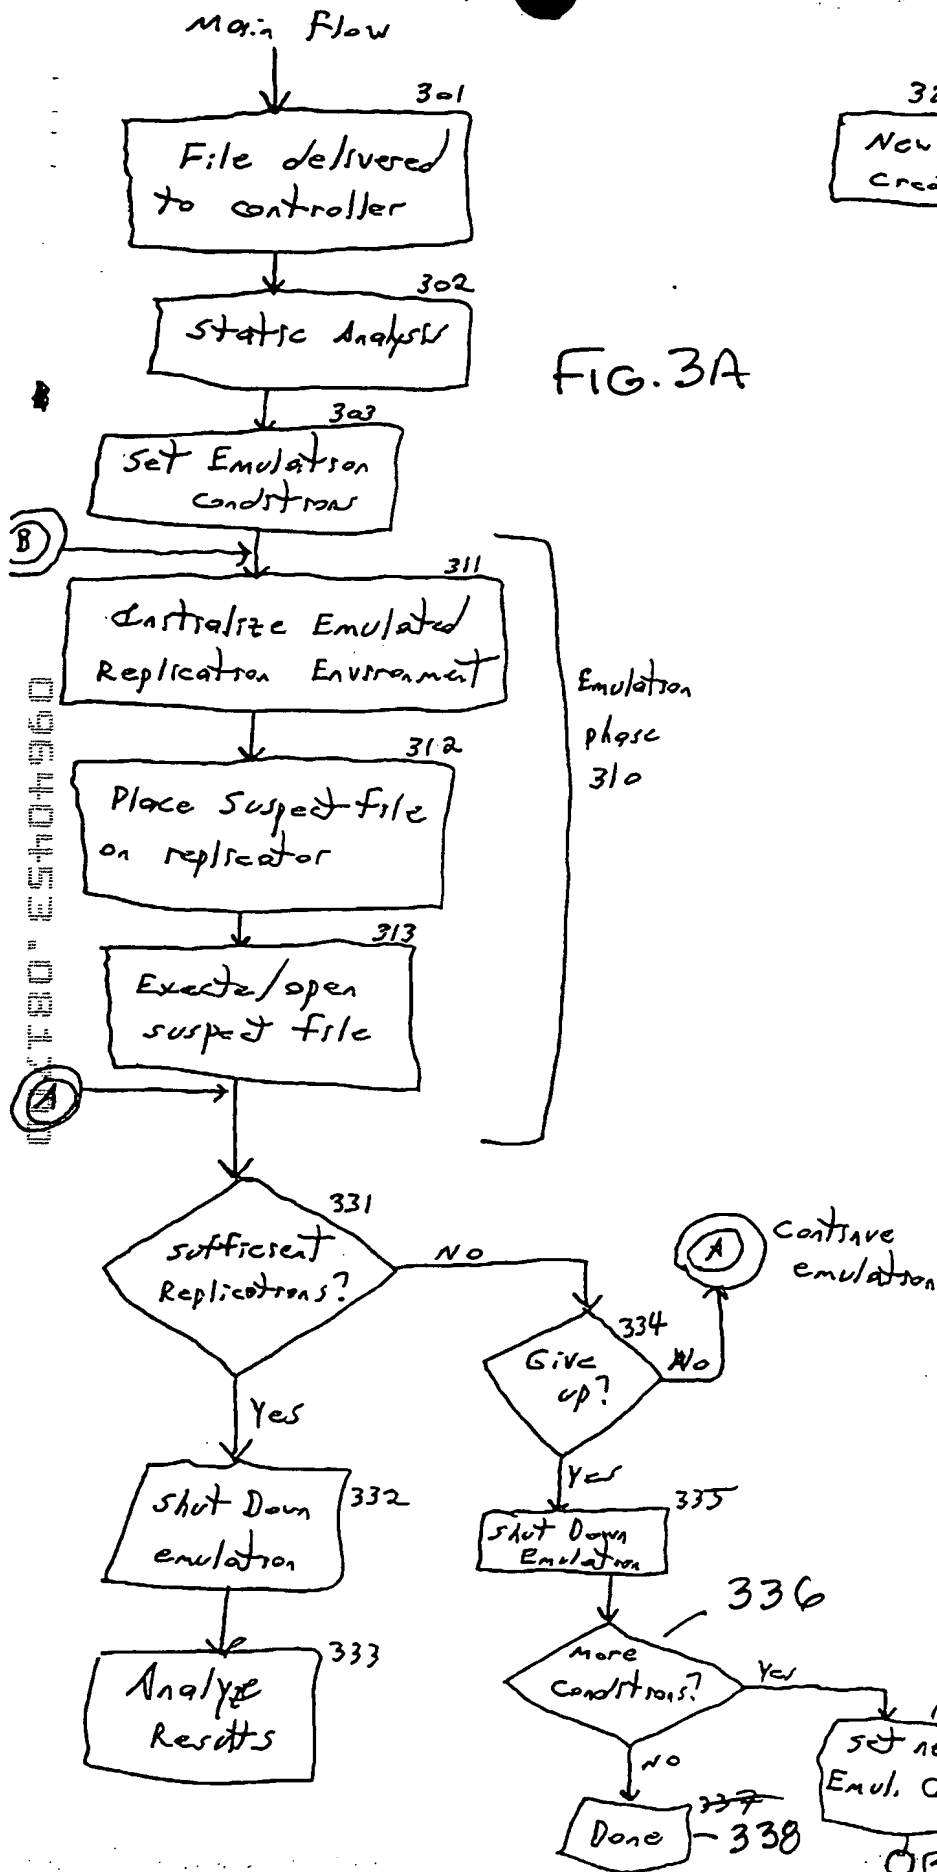 Main Flow
301
File delivered
to controller
32
New
Crea
302
Static Analysis
FIG. 3A
303
Set Emulation
conditions
B
311
Initialize Emulated
Replication Environment
Emulation
phase
310
312
Place Suspect file
on replicator
313
Execute/open
suspect file
A
331
sufficient
Replications?
NO
A
Continue
emulation
334
Give
up?
No
Yes
Yes
332
shut Down
emulation
335
shut Down
Emulation
336
333
Analyze
Results
More
Conditions?
Yes
set ne
Emul. C
NO
337
Done
338